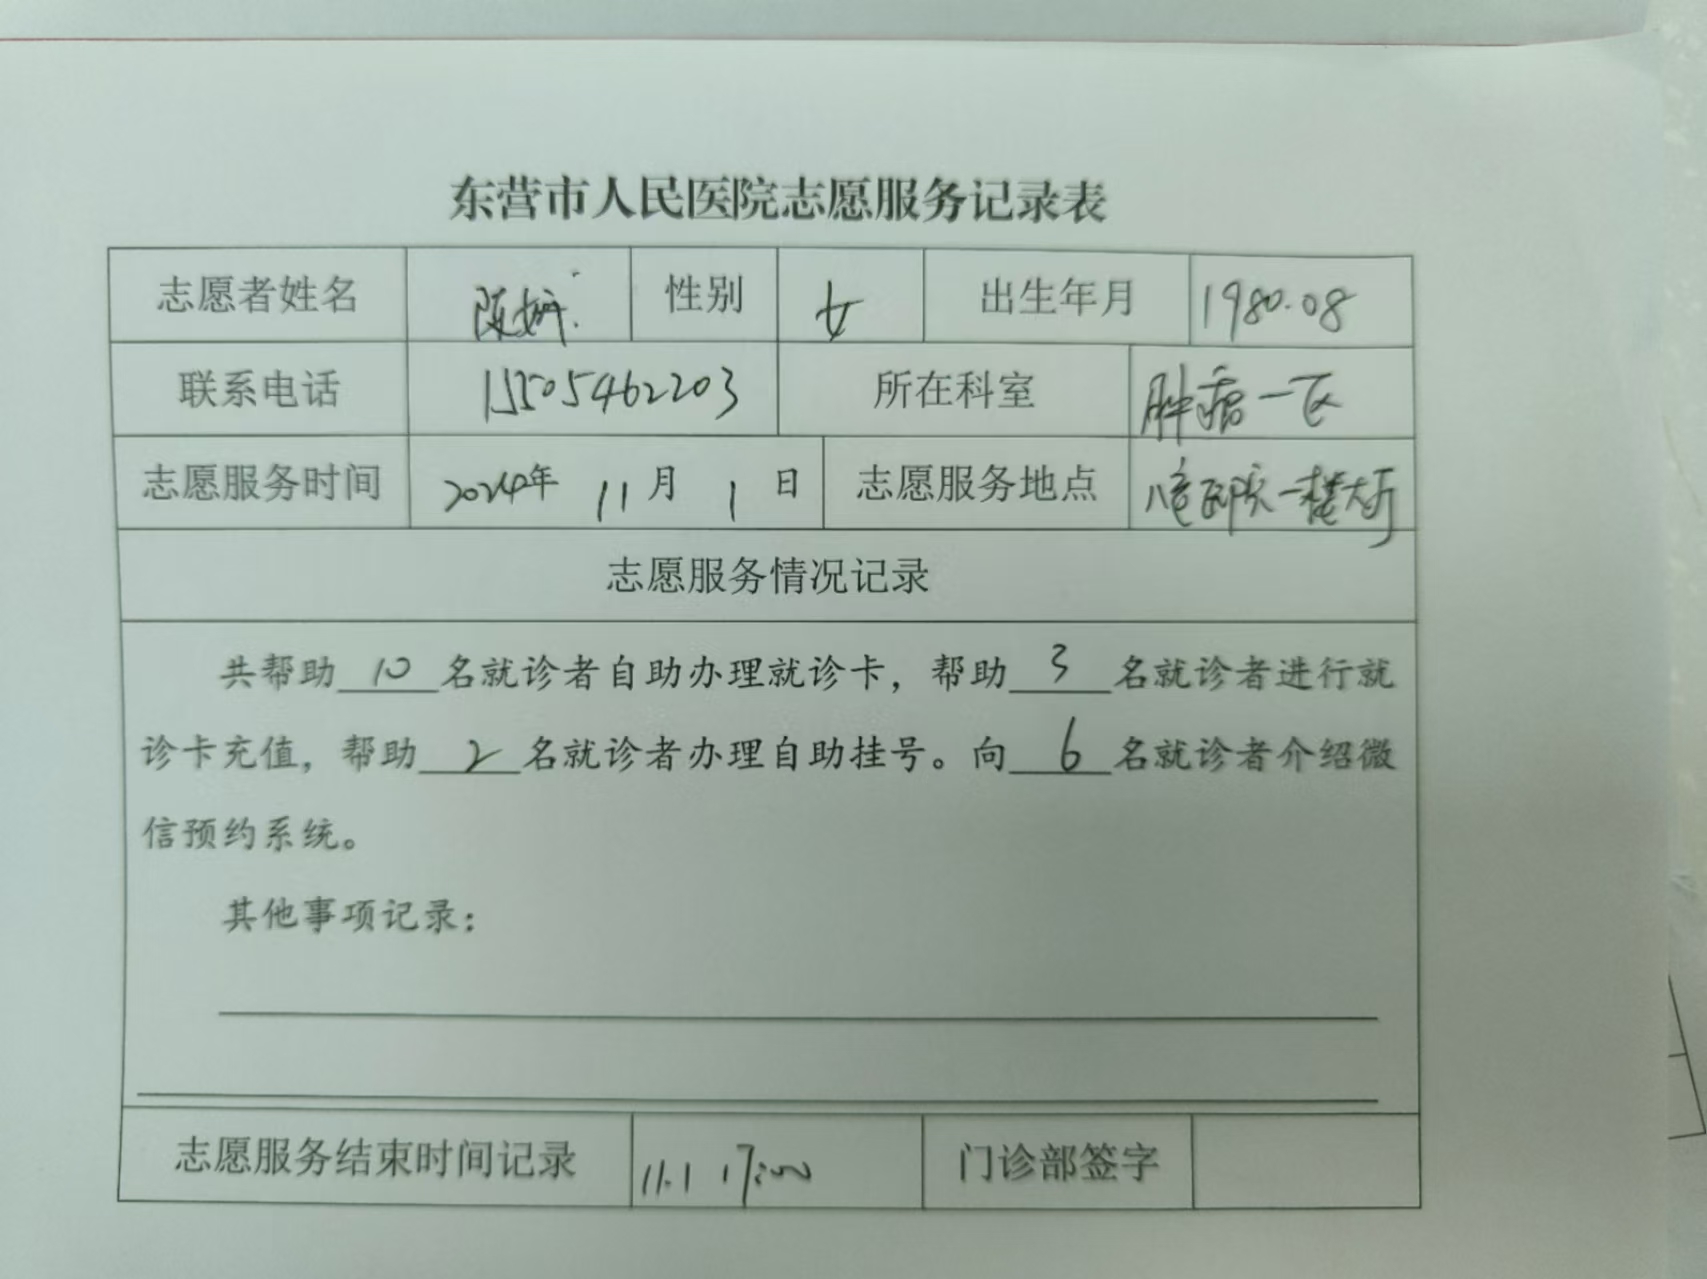 东营市人民医院志愿服务记录表
志愿者姓名 陈 性别 女 出生年月 1980.08
联系电话 15505462203 所在科室 肿瘤一区
志愿服务时间 2024年 11月 1日 志愿服务地点 一楼大厅
志愿服务情况记录
共帮助 10 名就诊者自助办理就诊卡，帮助 3 名就诊者进行就
诊卡充值，帮助 2 名就诊者办理自助挂号。向 6 名就诊者介绍微
信预约系统。
其他事项记录：
志愿服务结束时间记录 11.1 17:00 门诊部签字